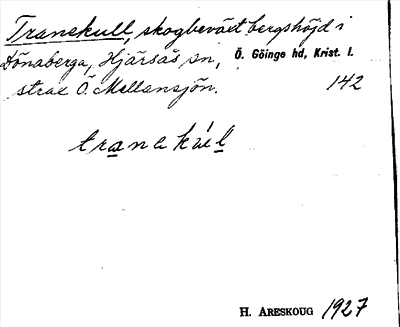 Tranekull, skogbeväxt bergshöjd i
Dönaberga, Hjärsås sn, Ö. Göinge hd, Krist. l.
strax Ö. Mellansjön. 142
H. ARESKOUG 1927